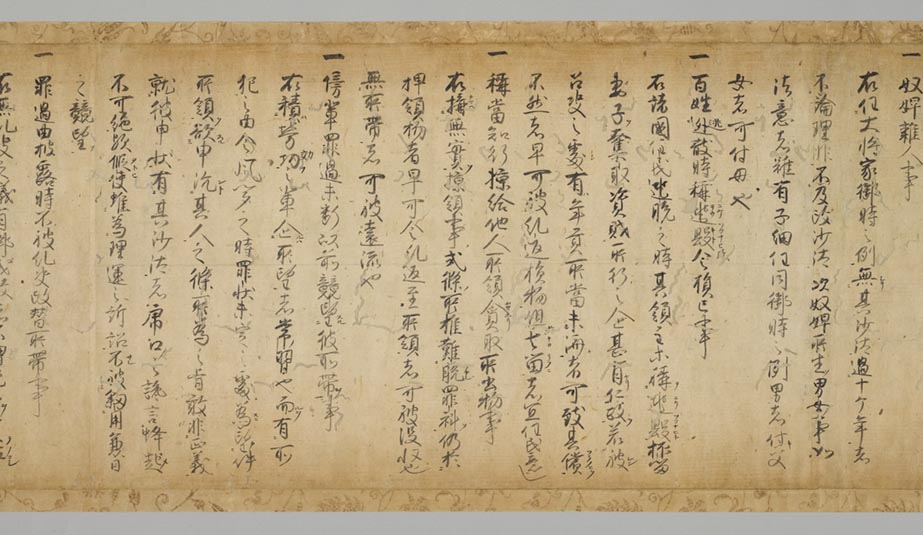 一 奴婢雜人事
右任大將家御時之例無其沙汰過十ケ年者
不論理非不及改沙汰次奴婢所生男女事如
法意者雖有子細任同御時之例男者付父
女者可付母也
一 百姓逃散時稱逃毀令損亡事
右諸國住民逃脱之時其領主等稱逃毀抑留
妻子奪取資財所行之企甚背仁政若被
召決之處有年貢所當未濟者可致其償
不然者早可被糺返損物但去留者宜任民意
一 稱當知行掠給他人所領貪取所出物事
右搆無實掠領事式條所推難脱罪科仍於
押領物者早可令糺返至所領者可被沒收也
無所帶者可被遠流也
一 傍輩罪過未斷以前競望彼所帶事
右積勞功之輩企所望者常習也而有所
犯之由令風聞之時罪状未定之處爲望件
所領欲申沈其人之條所爲之旨敢非正義
就彼申状有其沙汰者虎口之讒言蜂起
不可絶歟縱使雖爲理運之訴訟不被敍用兼日
之競望
一 罪過由披露時不被糺決改替所帶事
右無糺決之義有御成敗者